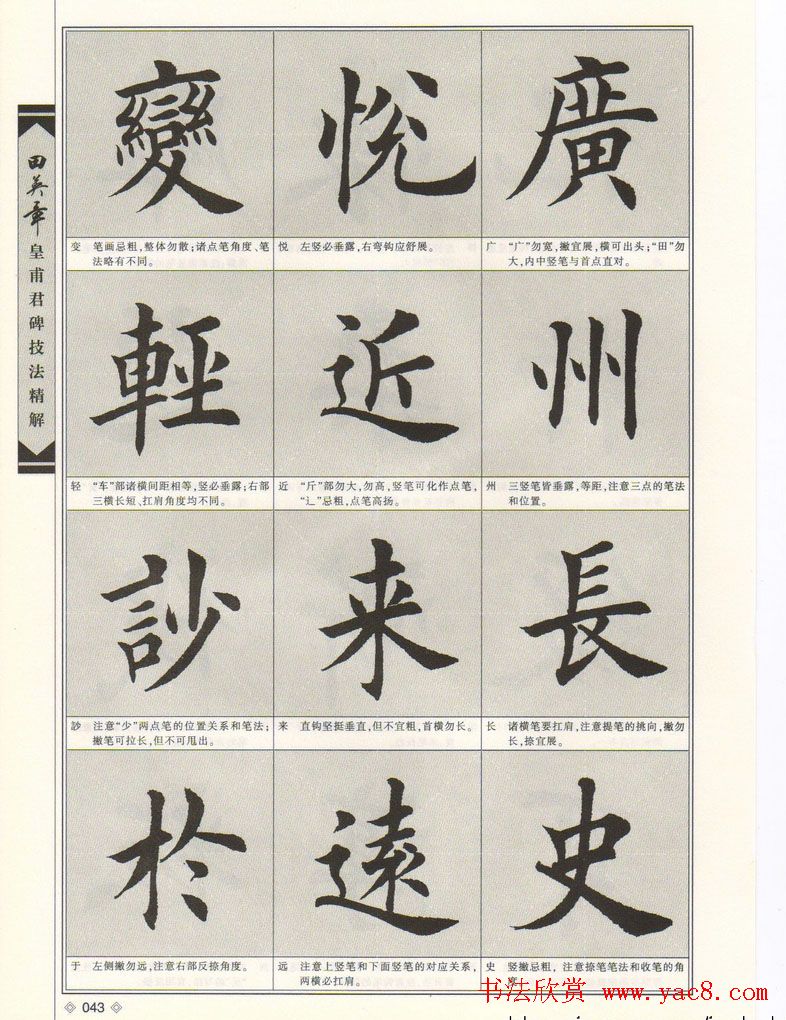 田英章
皇甫君碑技法精解
變
悦
廣
变 笔画忌粗,整体勿散;诸点笔角度、笔
法略有不同。
悦 左竖必垂露,右弯钩应舒展。
广 “广”勿宽,撇宜展,横可出头;“田”勿
大,内中竖笔与首点直对。
輕
近
州
轻 “车”部诸横间距相等,竖必垂露;右部
三横长短、扛肩角度均不同。
近 “斤”部勿大,勿高,竖笔可化作点笔,
“辶”忌粗,点笔高扬。
州 三竖笔皆垂露,等距,注意三点的笔法
和位置。
訬
来
長
訬 注意“少”两点笔的位置关系和笔法;
撇笔可拉长,但不可甩出。
来 直钩坚挺垂直,但不宜粗,首横勿长。
长 诸横笔要扛肩,注意提笔的挑向,撇勿
长,捺宜展。
於
遠
史
于 左侧撇勿远,注意右部反捺角度。
远 注意上竖笔和下面竖笔的对应关系,
两横必扛肩。
史 竖撇忌粗,注意捺笔笔法和收笔的角
043
书法欣赏 www.yac8.com